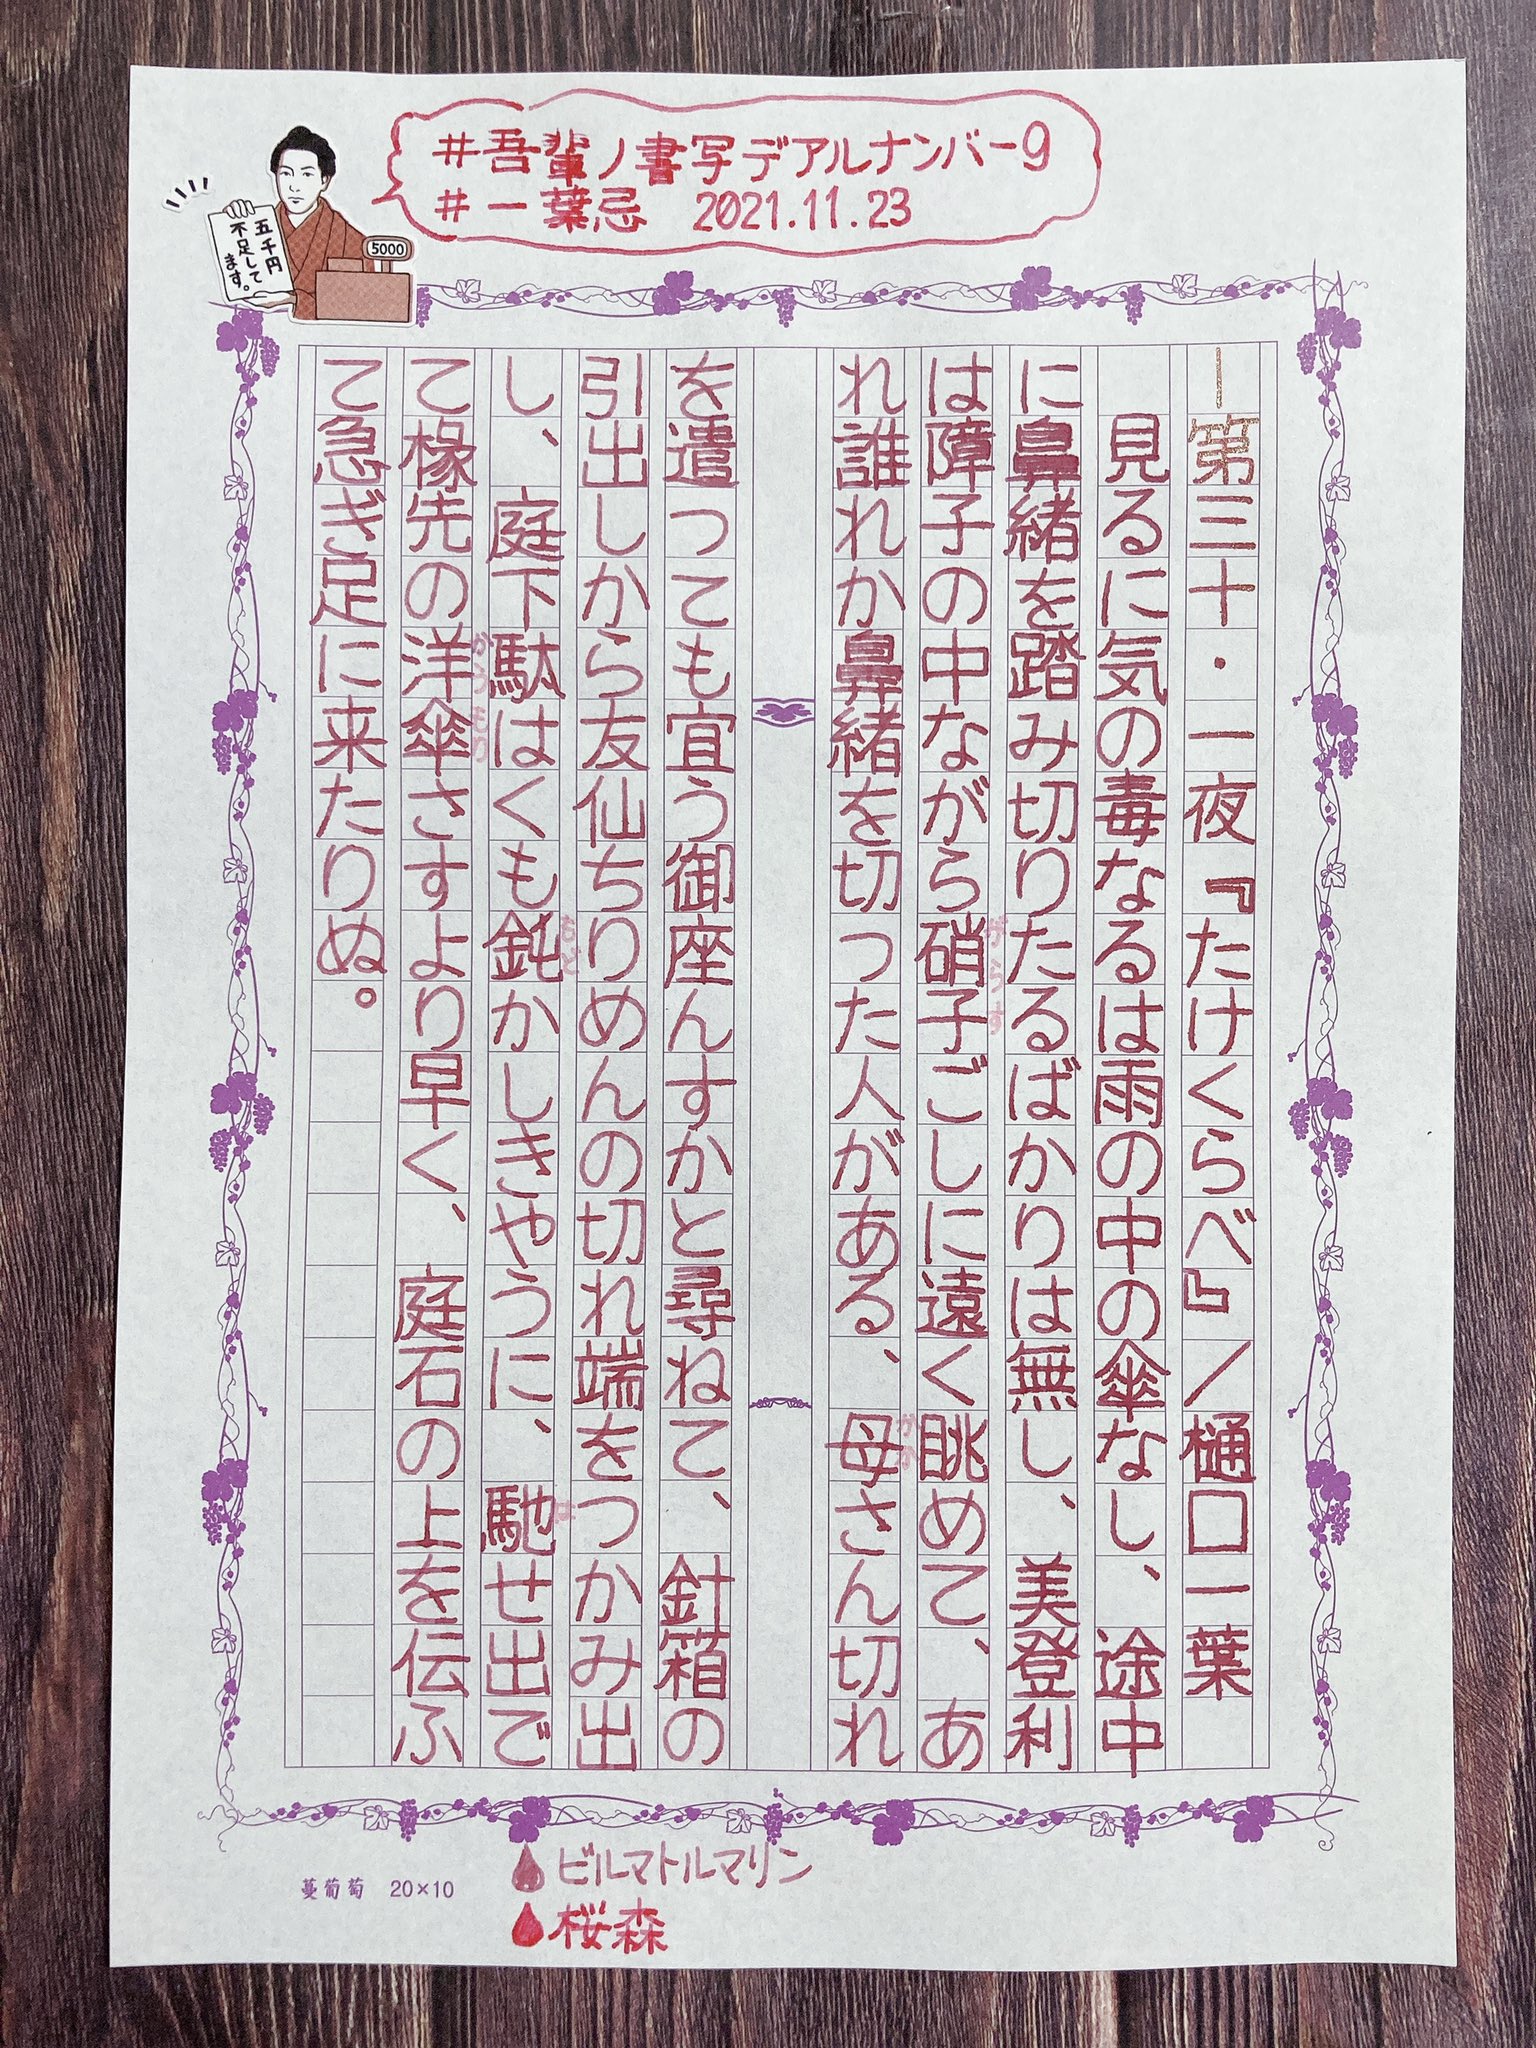 #吾輩ノ書写デアルナンバー9
#一葉忌 2021.11.23
五千円
不足して
ます。
5000
―第三十・一夜『たけくらべ』/樋口一葉
見るに気の毒なるは雨の中の傘なし、途中
に鼻緒を踏み切りたるばかりは無し、美登利
は障子の中ながら硝子ごしに遠く眺めて、あ
がらす
れ誰れか鼻緒を切つた人がある、母さん切れ
かか
を遣つても宜う御座んすかと尋ねて、針箱の
引出しから友仙ちりめんの切れ端をつかみ出
し、庭下駄はくも鈍かしきやうに、馳せ出で
もど
は
て椽先の洋傘さすより早く、庭石の上を伝ふ
かうもり
て急ぎ足に来たりぬ。
蔓葡萄 20×10
ビルマトルマリン
桜森